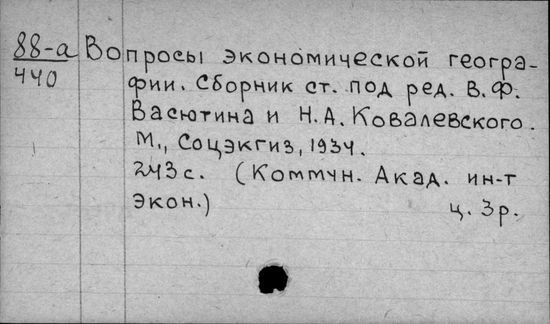 88-а Вопросы экономической геогра-
440 фии. Сборник ст. под ред. В.Ф.
Васютина и Н.А. Ковалевского.
М., Соцэкгиз, 1934.
243 с. (Коммун. Акад. ин-т
экон.) ц. 3р.